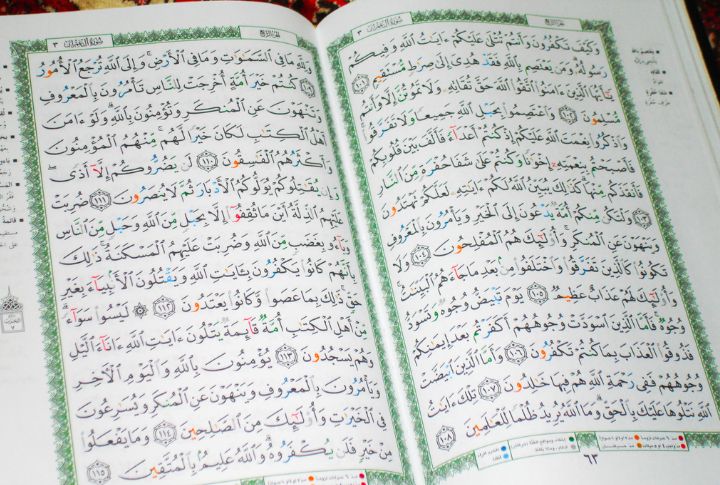 الجزء الرابع
سورة آل عمران ٣
وَكَيْفَ تَكْفُرُونَ وَأَنتُمْ تُتْلَىٰ عَلَيْكُمْ ءَايَٰتُ ٱللَّهِ وَفِيكُمْ
رَسُولُهُۥ وَمَن يَعْتَصِم بِٱللَّهِ فَقَدْ هُدِىَ إِلَىٰ صِرَٰطٍ مُّسْتَقِيمٍ ١٠١
يَٰٓأَيُّهَا ٱلَّذِينَ ءَامَنُوا۟ ٱتَّقُوا۟ ٱللَّهَ حَقَّ تُقَاتِهِۦ وَلَا تَمُوتُنَّ إِلَّا وَأَنتُم
مُّسْلِمُونَ ١٠٢ وَٱعْتَصِمُوا۟ بِحَبْلِ ٱللَّهِ جَمِيعًا وَلَا تَفَرَّقُوا۟
وَٱذْكُرُوا۟ نِعْمَتَ ٱللَّهِ عَلَيْكُمْ إِذْ كُنتُمْ أَعْدَآءً فَأَلَّفَ بَيْنَ قُلُوبِكُمْ
فَأَصْبَحْتُم بِنِعْمَتِهِۦٓ إِخْوَٰنًا وَكُنتُمْ عَلَىٰ شَفَا حُفْرَةٍ مِّنَ ٱلنَّارِ
فَأَنقَذَكُم مِّنْهَا كَذَٰلِكَ يُبَيِّنُ ٱللَّهُ لَكُمْ ءَايَٰتِهِۦ لَعَلَّكُمْ تَهْتَدُونَ
١٠٣ وَلْتَكُن مِّنكُمْ أُمَّةٌ يَدْعُونَ إِلَى ٱلْخَيْرِ وَيَأْمُرُونَ بِٱلْمَعْرُوفِ
وَيَنْهَوْنَ عَنِ ٱلْمُنكَرِ وَأُو۟لَٰٓئِكَ هُمُ ٱلْمُفْلِحُونَ ١٠٤ وَلَا
تَكُونُوا۟ كَٱلَّذِينَ تَفَرَّقُوا۟ وَٱخْتَلَفُوا۟ مِنۢ بَعْدِ مَا جَآءَهُمُ ٱلْبَيِّنَٰتُ
وَأُو۟لَٰٓئِكَ لَهُمْ عَذَابٌ عَظِيمٌ ١٠٥ يَوْمَ تَبْيَضُّ وُجُوهٌ وَتَسْوَدُّ
وُجُوهٌ فَأَمَّا ٱلَّذِينَ ٱسْوَدَّتْ وُجُوهُهُمْ أَكَفَرْتُم بَعْدَ إِيمَٰنِكُمْ
فَذُوقُوا۟ ٱلْعَذَابَ بِمَا كُنتُمْ تَكْفُرُونَ ١٠٦ وَأَمَّا ٱلَّذِينَ ٱبْيَضَّتْ
وُجُوهُهُمْ فَفِى رَحْمَةِ ٱللَّهِ هُمْ فِيهَا خَٰلِدُونَ ١٠٧ تِلْكَ ءَايَٰتُ
ٱللَّهِ نَتْلُوهَا عَلَيْكَ بِٱلْحَقِّ وَمَا ٱللَّهُ يُرِيدُ ظُلْمًا لِّلْعَٰلَمِينَ ١٠٨
٦٣
الجزء الرابع
سورة آل عمران ٣
وَلِلَّهِ مَا فِى ٱلسَّمَٰوَٰتِ وَمَا فِى ٱلْأَرْضِ وَإِلَى ٱللَّهِ تُرْجَعُ ٱلْأُمُورُ
١٠٩ كُنتُمْ خَيْرَ أُمَّةٍ أُخْرِجَتْ لِلنَّاسِ تَأْمُرُونَ بِٱلْمَعْرُوفِ
وَتَنْهَوْنَ عَنِ ٱلْمُنكَرِ وَتُؤْمِنُونَ بِٱللَّهِ وَلَوْ ءَامَنَ
أَهْلُ ٱلْكِتَٰبِ لَكَانَ خَيْرًا لَّهُم مِّنْهُمُ ٱلْمُؤْمِنُونَ
وَأَكْثَرُهُمُ ٱلْفَٰسِقُونَ ١١٠ لَن يَضُرُّوكُمْ إِلَّآ أَذًى
وَإِن يُقَٰتِلُوكُمْ يُوَلُّوكُمُ ٱلْأَدْبَارَ ثُمَّ لَا يُنصَرُونَ ١١١ ضُرِبَتْ
عَلَيْهِمُ ٱلذِّلَّةُ أَيْنَ مَا ثُقِفُوٓا۟ إِلَّا بِحَبْلٍ مِّنَ ٱللَّهِ وَحَبْلٍ مِّنَ ٱلنَّاسِ
وَبَآءُو بِغَضَبٍ مِّنَ ٱللَّهِ وَضُرِبَتْ عَلَيْهِمُ ٱلْمَسْكَنَةُ ذَٰلِكَ
بِأَنَّهُمْ كَانُوا۟ يَكْفُرُونَ بِـَٔايَٰتِ ٱللَّهِ وَيَقْتُلُونَ ٱلْأَنۢبِيَآءَ بِغَيْرِ
حَقٍّ ذَٰلِكَ بِمَا عَصَوا۟ وَّكَانُوا۟ يَعْتَدُونَ ١١٢ ۞ لَيْسُوا۟ سَوَآءً
مِّنْ أَهْلِ ٱلْكِتَٰبِ أُمَّةٌ قَآئِمَةٌ يَتْلُونَ ءَايَٰتِ ٱللَّهِ ءَانَآءَ ٱلَّيْلِ
وَهُمْ يَسْجُدُونَ ١١٣ يُؤْمِنُونَ بِٱللَّهِ وَٱلْيَوْمِ ٱلْءَاخِرِ
وَيَأْمُرُونَ بِٱلْمَعْرُوفِ وَيَنْهَوْنَ عَنِ ٱلْمُنكَرِ وَيُسَٰرِعُونَ
فِى ٱلْخَيْرَٰتِ وَأُو۟لَٰٓئِكَ مِنَ ٱلصَّٰلِحِينَ ١١٤ وَمَا يَفْعَلُوا۟
مِنْ خَيْرٍ فَلَن يُكْفَرُوهُ وَٱللَّهُ عَلِيمٌۢ بِٱلْمُتَّقِينَ ١١٥